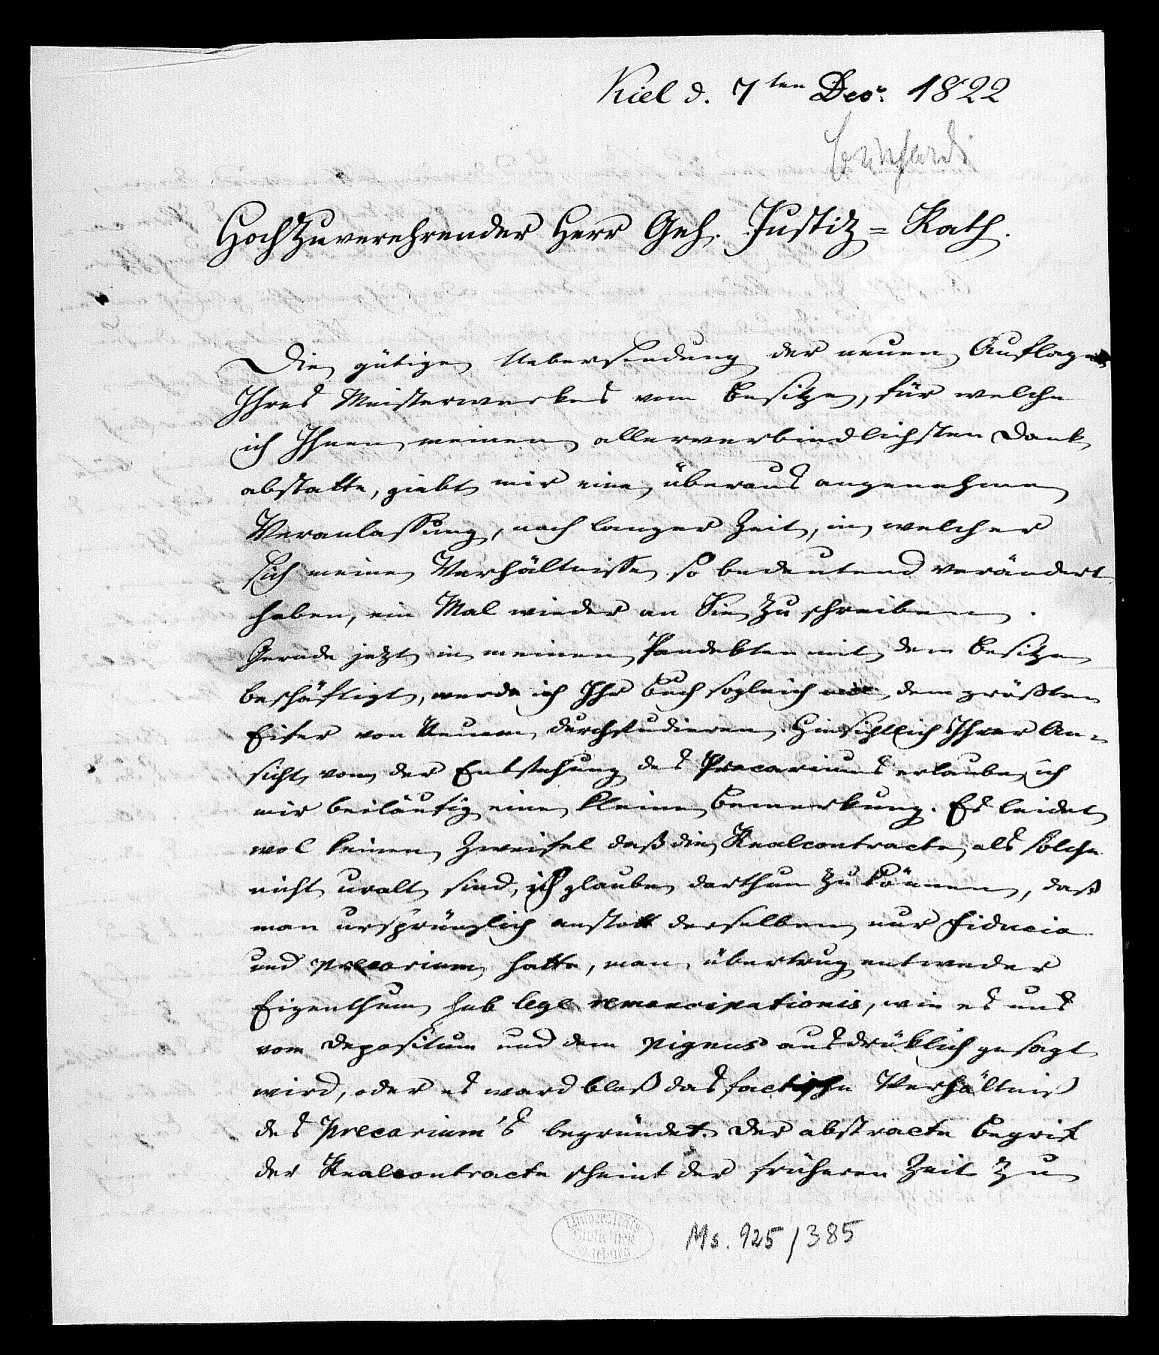 Kiel d. 7ten Decbr. 1822
Hochzuverehrender Herr Geh. Justiz=Rath.
Die gütige Uebersendung der neuen Auflage
Ihres Meisterwerkes vom Besitze, für welche
ich Ihnen meinen allerverbindlichsten Dank
abstatte, giebt mir eine überaus angenehme
Veranlassung, nach langer Zeit, in welcher
sich meine Verhältnisse so bedeutend verändert
haben, ein Mal wieder an Sie zu schreiben.
Gerade jetzt in meinen Pandekten mit dem Besitze
beschäftigt, werde ich Ihr Buch sogleich mit dem größten
Eifer von Neuem durchstudieren. Hinsichtlich Ihrer An=
sicht von der Entstehung des Precariums erlaube ich
mir beiläufig eine kleine Bemerkung. Es leidet
wol keinen Zweifel daß die Realcontracte als solche
nicht uralt sind, ich glaube darthun zu können, daß
man ursprünglich anstatt derselben nur fiducia
und precarium hatte, man übertrug entweder
Eigenthum sub lege remancipationis, wie es uns
vom depositum und dem pignus ausdrüklich gesagt
wird, oder es ward bloß das factische Verhältniß
des precarium's begründet. Der abstracte Begrif
der Realcontracte scheint der früheren Zeit zu
Ms. 925/385